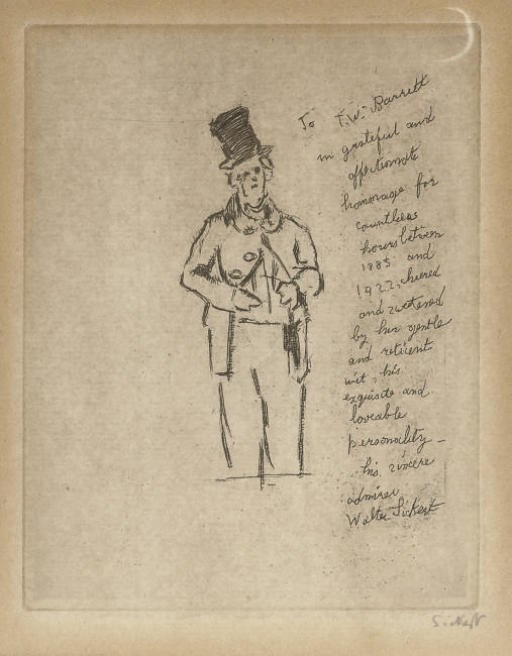 To T.W. Barrett
in grateful and
affectionate
homage for
countless
hours between
1885 and
1922, cheered
and sweetened
by his gentle
and reticent
wit, his
exquisite and
loveable
personality –
his sincere
admirer
Walter Sickert
Sickert